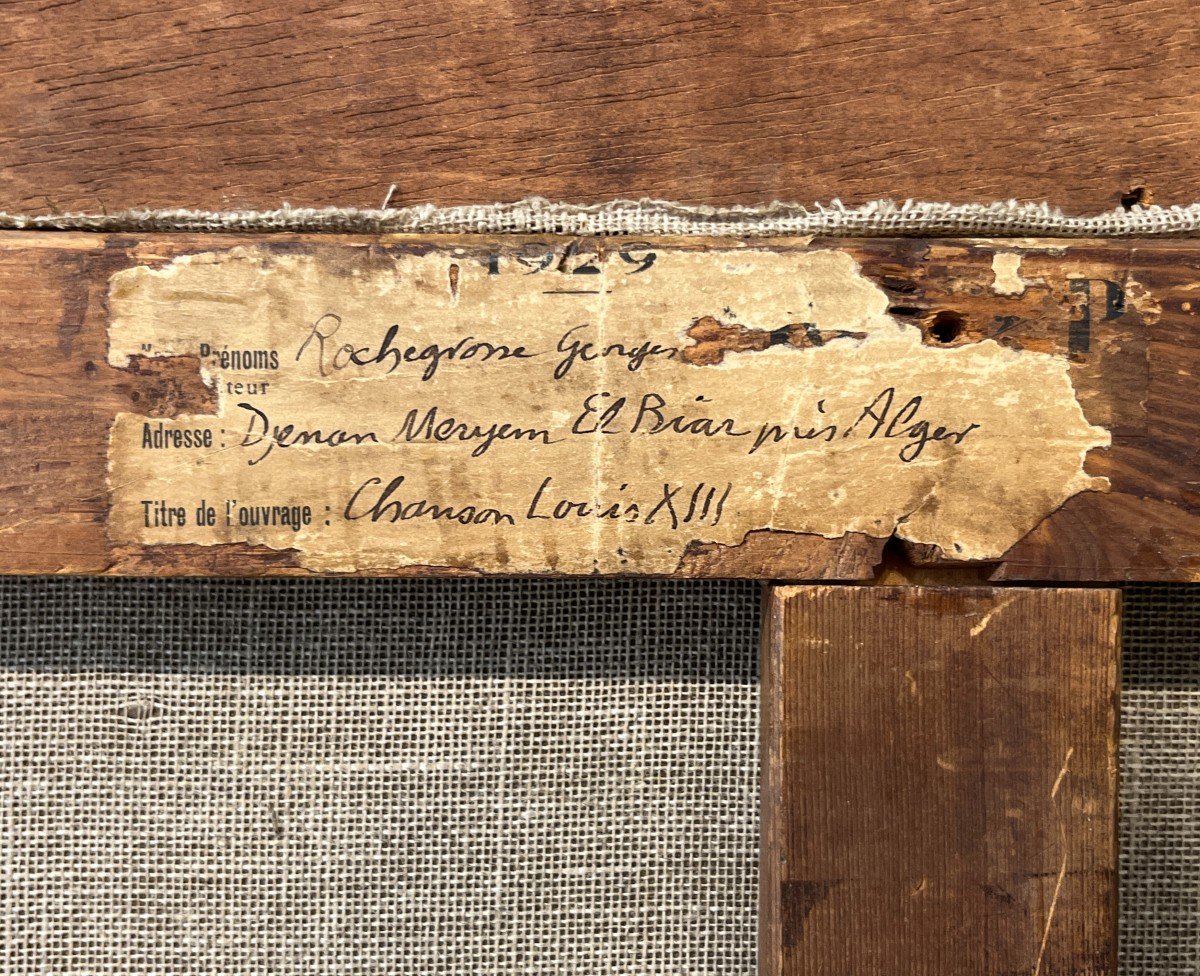 1929
Prénoms Rochegrosse Georges
teur
Adresse : Djenan Meryem El Biar près Alger
Titre de l'ouvrage : Chanson Louis XIII
P